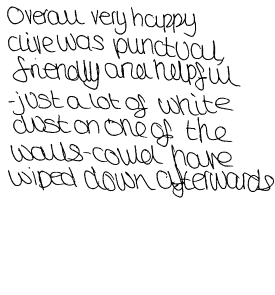 Overall very happy
clive was punctual,
friendly and helpful
-just a lot of white
dust on one of the
walls-could have
wiped down afterwards